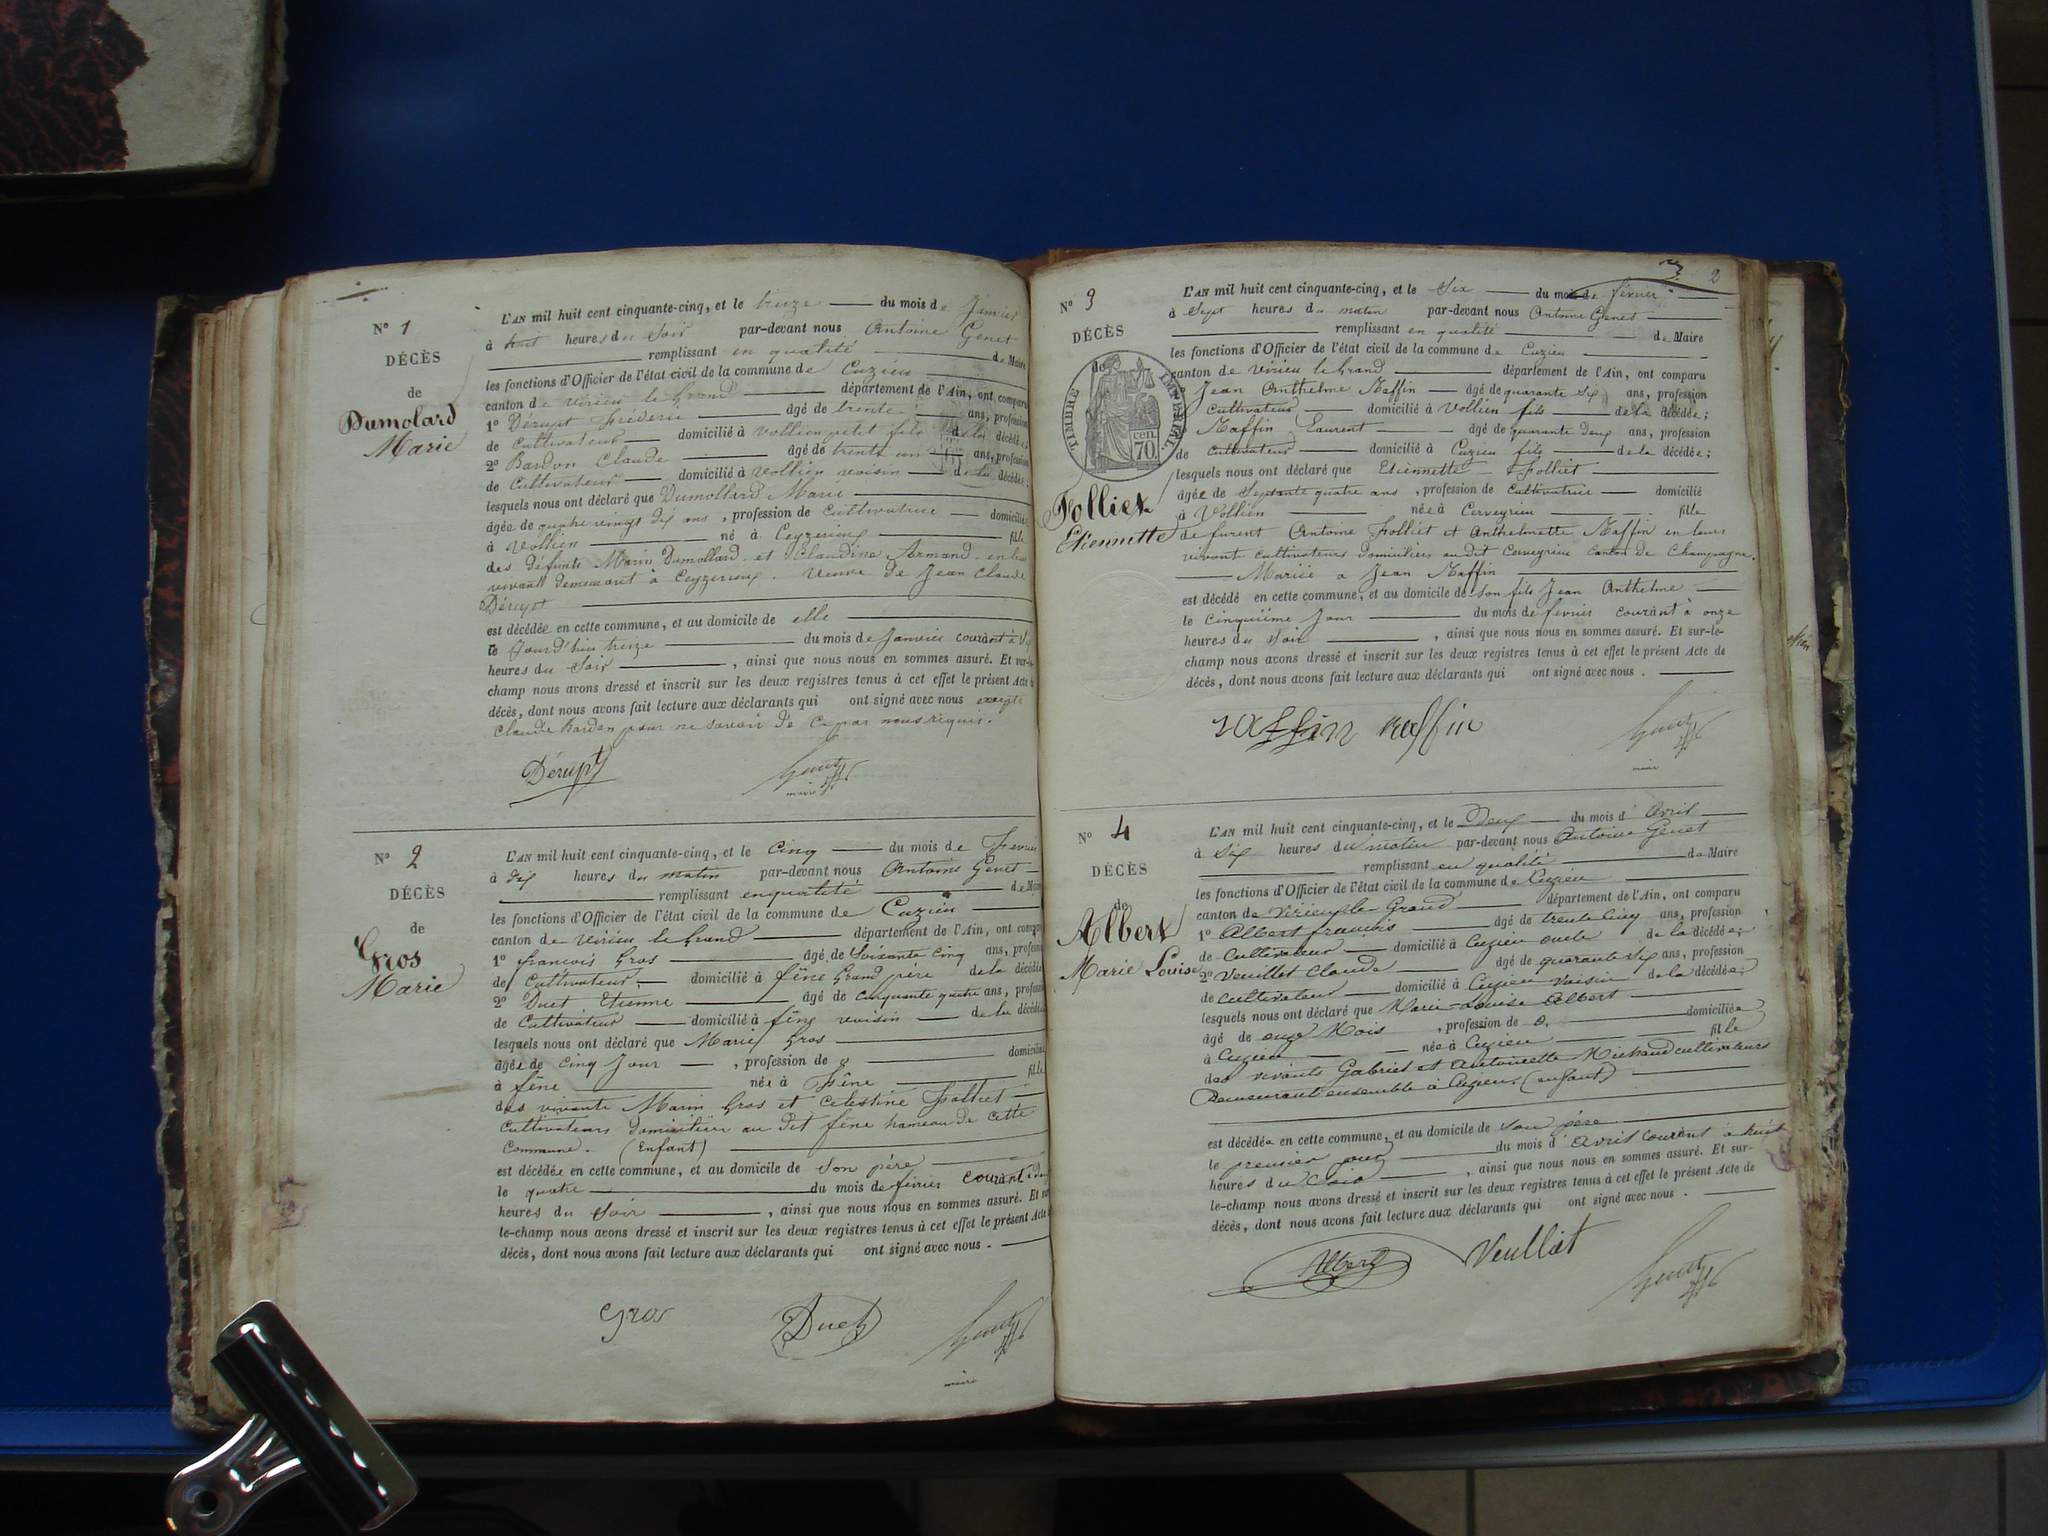 N° 1
DÉCÈS
de
Dumolard
Marie
L'AN mil huit cent cinquante-cinq, et le treize du mois de Janvier
à huit heures du Soir par-devant nous Antoine Genet
remplissant en qualité de Maire
les fonctions d'Officier de l'état civil de la commune de Cuzieu
canton de Virieu le Grand département de l'Ain, ont comparu
1° Dérupt Fréderic âgé de trente ans, profession
de Cultivateur domicilié à Vollien petit fils de la décédée;
2° Bardon Claude âgé de trente un ans, profession
de Cultivateur domicilié à Vollien voisin de la décédée;
lesquels nous ont déclaré que Dumollard Marie
âgée de quatre vingt dix ans, profession de Cultivatrice domicilié
à Vollien né à Ceyzerieux fille
des défunts Marin Dumollard et Claudine Armand en leur
vivant demeurant à Ceyzerieux. Veuve de Jean Claude
Dérupt
est décédée en cette commune, et au domicile de elle
le Jourd'hui treize du mois de Janvier courant à
heures du Soir, ainsi que nous nous en sommes assuré. Et sur-le-
champ nous avons dressé et inscrit sur les deux registres tenus à cet effet le présent Acte de
décès, dont nous avons fait lecture aux déclarants qui ont signé avec nous excepté
Claude Bardon pour ne savoir de ce par nous requis.
Dérupt Genet
maire
N° 2
DÉCÈS
de
Gros
Marie
L'AN mil huit cent cinquante-cinq, et le cinq du mois de Fevrier
à dix heures du matin par-devant nous Antoine Genet
remplissant en qualité de Maire
les fonctions d'Officier de l'état civil de la commune de Cuzieu
canton de Virieu le Grand département de l'Ain, ont comparu
1° francois Gros âgé de Soixante cinq ans, profession
de Cultivateur domicilié à fêne Grand père de la décédée
2° Duet Etienne âgé de cinquante quatre ans, profession
de Cultivateur domicilié à fêne voisin de la décédée
lesquels nous ont déclaré que Marie Gros
âgée de cinq Jour, profession de 0 domiciliée
à fêne née à Fêne fille
des vivants Marin Gros et Celestine Folliet
Cultivateurs domiciliés au dit fêne hameau de cette
Commune. (Enfant)
est décédée en cette commune, et au domicile de Son père
le quatre du mois de février courant à
heures du Soir, ainsi que nous nous en sommes assuré. Et sur-
le-champ nous avons dressé et inscrit sur les deux registres tenus à cet effet le présent Acte de
décès, dont nous avons fait lecture aux déclarants qui ont signé avec nous.
Gros Duet Genet
maire
2
N° 3
DÉCÈS
de
TIMBRE IMPÉRIAL
70 cen.
Folliet
Etiennette
L'AN mil huit cent cinquante-cinq, et le Six du mois de février
à Sept heures du matin par-devant nous Antoine Genet
remplissant en qualité de Maire
les fonctions d'Officier de l'état civil de la commune de Cuzieu
canton de Virieu le Grand département de l'Ain, ont comparu
Jean Anthelme Raffin âgé de quarante Six ans, profession
Cultivateur domicilié à Vollien fils de la décédée;
Raffin Laurent âgé de quarante Deux ans, profession
de Cultivateur domicilié à Cuzieu fils de la décédée;
lesquels nous ont déclaré que Etiennette Folliet
âgée de Septante quatre ans, profession de Cultivatrice domicilié
à Vollien née à Cerveyrieu fille
de furent Antoine Folliet et Anthelmette Raffin en leurs
vivant cultivateurs Domiciliés au dit Cerveyrieu Canton de Champagne.
Mariée a Jean Raffin
est décédé en cette commune, et au domicile de Son fils Jean Anthelme
le Cinquième Jour du mois de février courant à onze
heures du Soir, ainsi que nous nous en sommes assuré. Et sur-le-
champ nous avons dressé et inscrit sur les deux registres tenus à cet effet le présent Acte de
décès, dont nous avons fait lecture aux déclarants qui ont signé avec nous.
raffin raffin Genet
maire
N° 4
DÉCÈS
de
Albert
Marie Louise
L'AN mil huit cent cinquante-cinq, et le Deux du mois d'Avril
à Six heures du matin par-devant nous Antoine Genet
remplissant en qualité de Maire
les fonctions d'Officier de l'état civil de la commune de Cuzieu
canton de Virieu le Grand département de l'Ain, ont comparu
1° Albert françois âgé de trente Cinq ans, profession
de Cultivateur domicilié à Cuzieu oncle de la décédée;
2° Veuillet Claude âgé de quarante Six ans, profession
de cultivateur domicilié à Cuzieu Voisin de la décédée;
lesquels nous ont déclaré que Marie-Louise Albert
âgé de onze Mois, profession de 0. domiciliée
à Cuzieu née à Cuzieu fille
des vivants Gabriel et Antoinette Michaud cultivateurs
Demeurant ensemble à Cuzieu (enfant)
est décédée en cette commune, et au domicile de son père
le premier jour du mois d'Avril courant à huit
heures du Soir, ainsi que nous nous en sommes assuré. Et sur-
le-champ nous avons dressé et inscrit sur les deux registres tenus à cet effet le présent Acte de
décès, dont nous avons fait lecture aux déclarants qui ont signé avec nous.
Albert Veulliet Genet